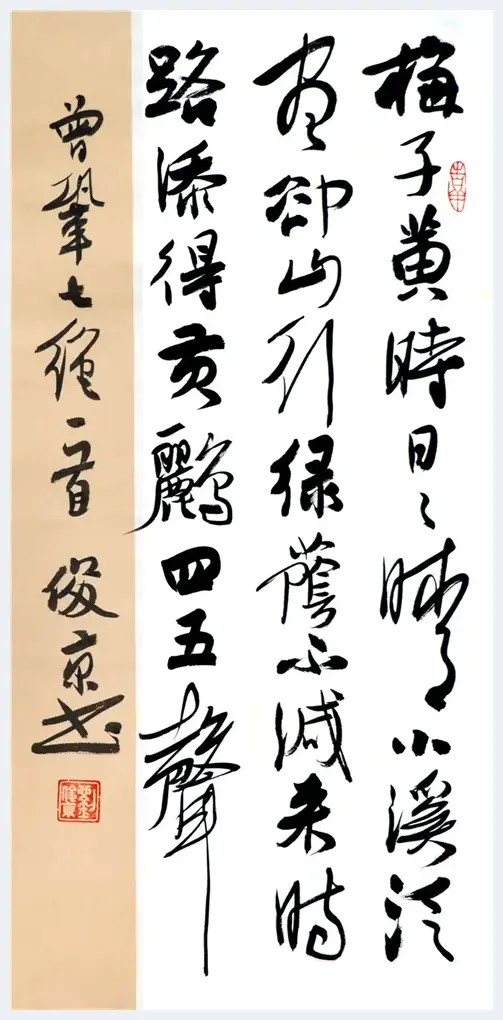 梅子黄時日々晴小溪泛
盡卻山行绿蔭不減来時
路添得黄鸝四五聲
曾鞏七絕一首 俊京书